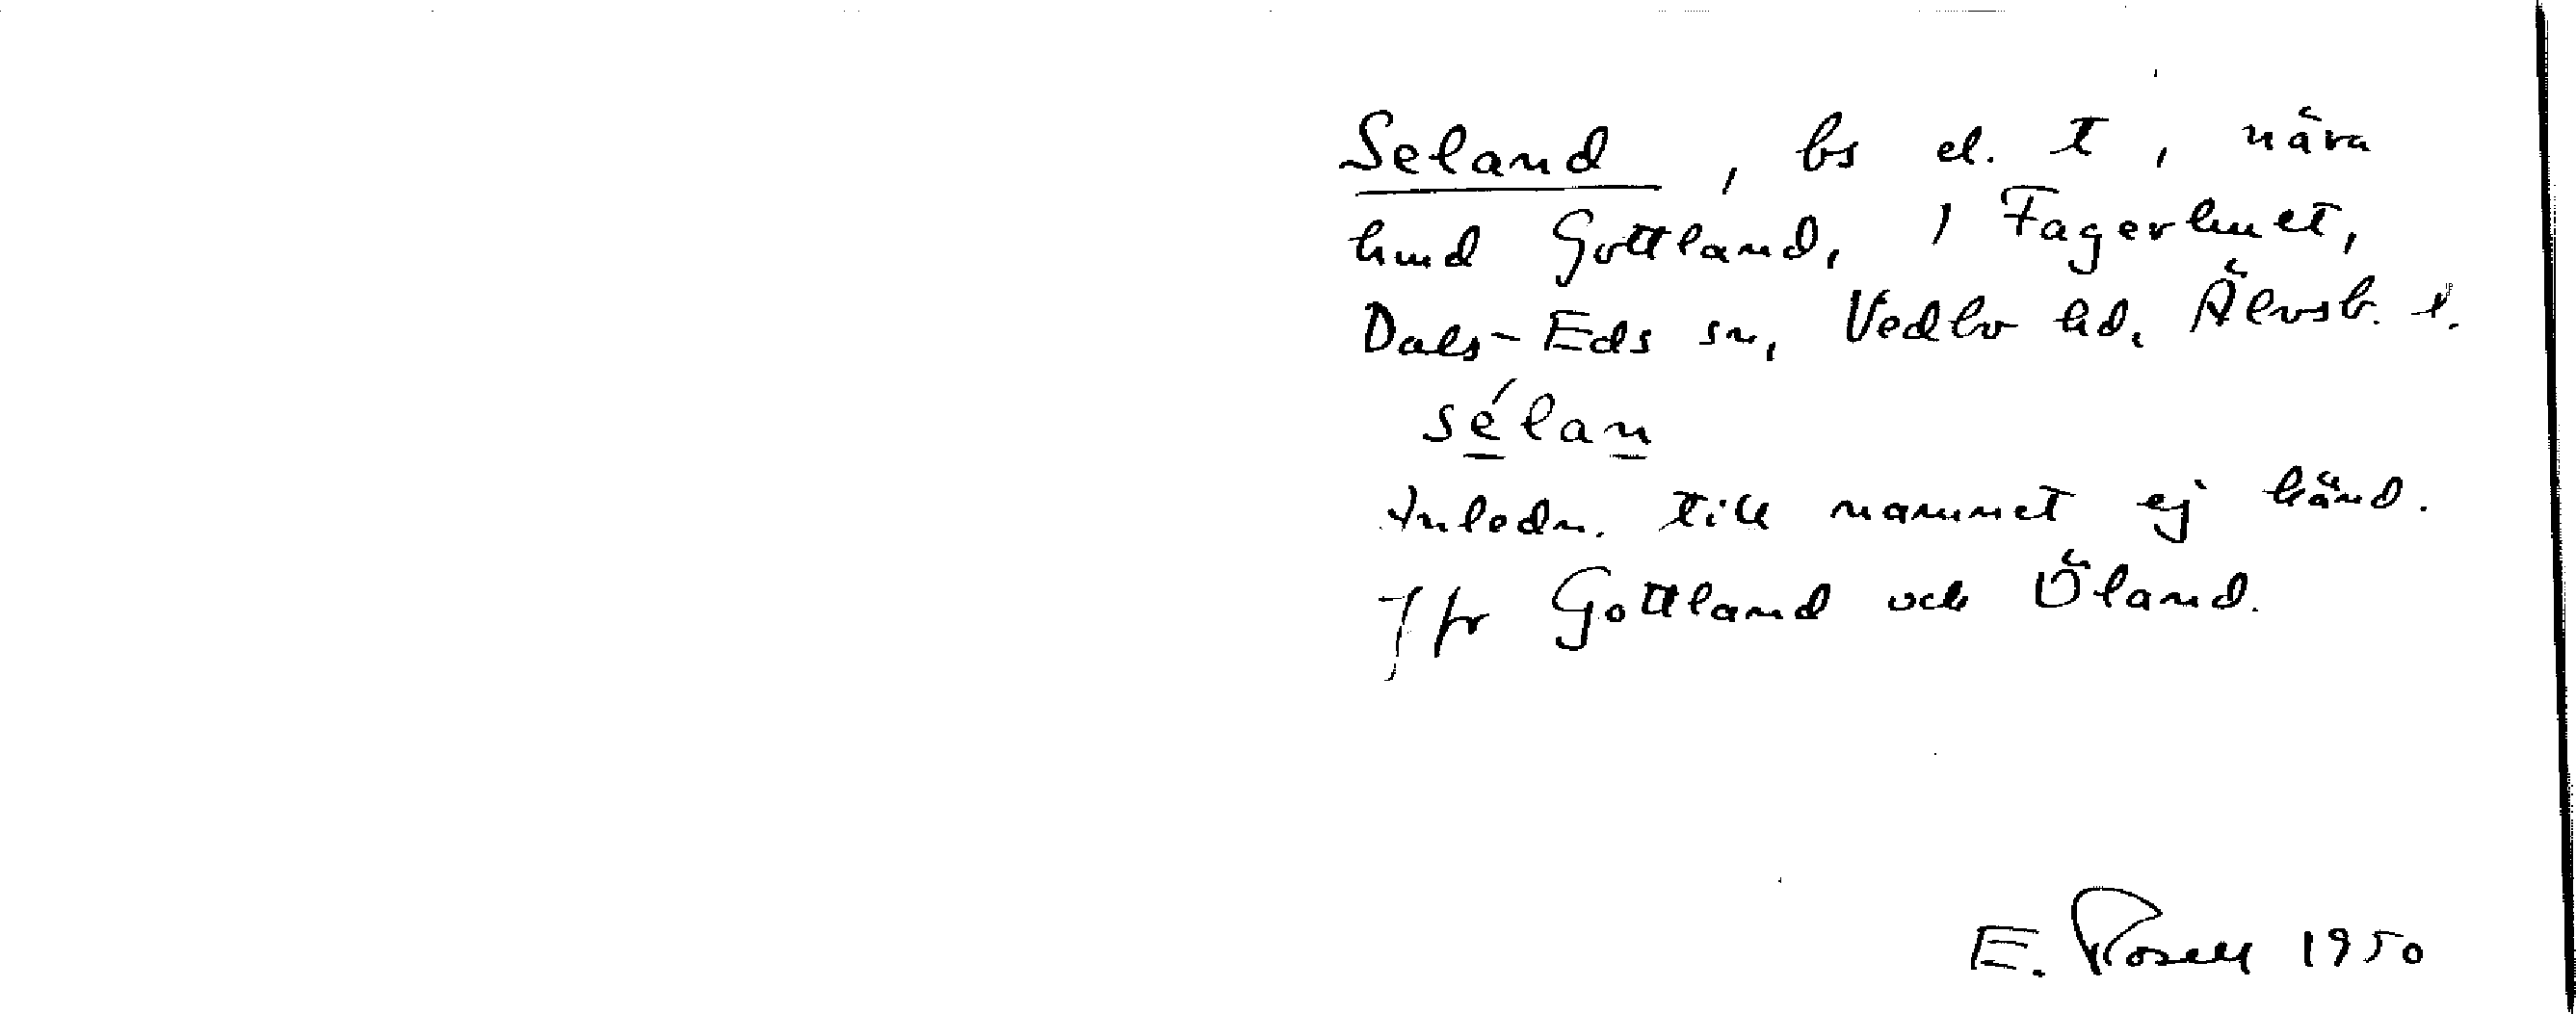 Seland, bs el. t, nära
hmd Gottland, i Fagerhult,
Dals-Eds sn, Vedbo hd, Älvsb. l.
sélan
Anledn. till namnet ej känd.
Jfr Gottland och Öland.
E. Rosell 1950